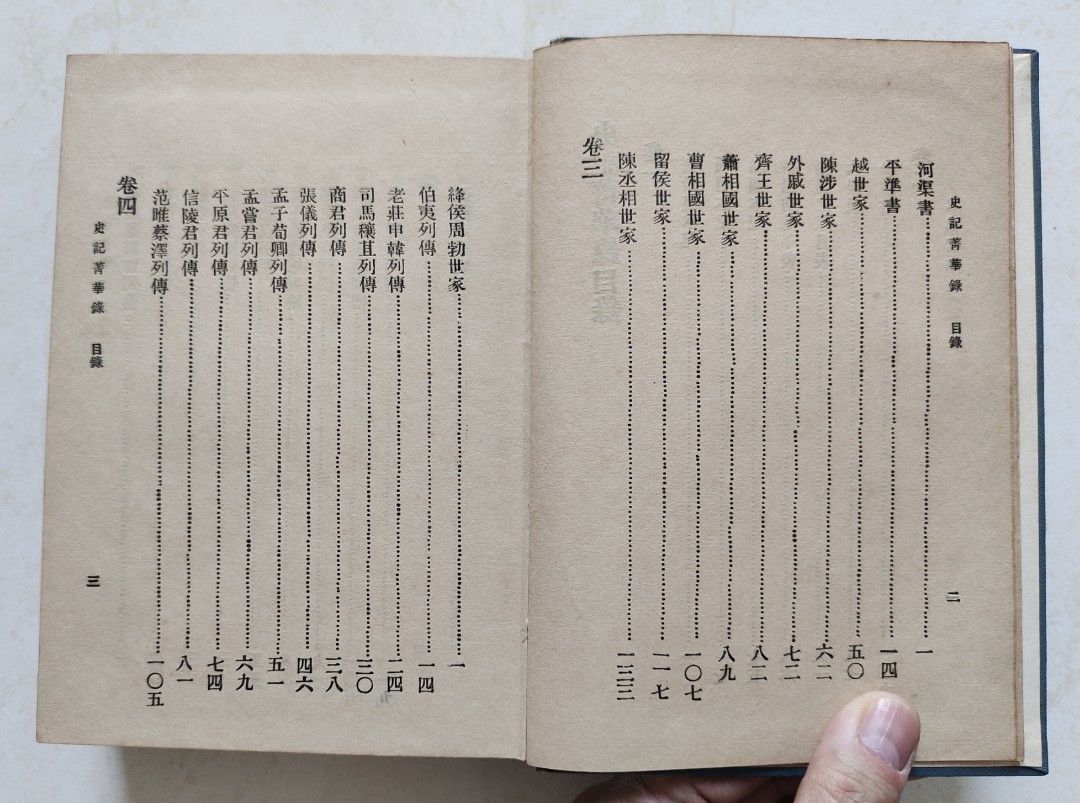 史記菁華錄 目錄 二
河渠書……一
平準書……一四
越世家……五〇
陳涉世家……六二
外戚世家……七二
齊王世家……八二
蕭相國世家……八九
曹相國世家……一〇七
留侯世家……一一七
陳丞相世家……一三三
卷三
絳侯周勃世家……一
伯夷列傳……一四
老莊申韓列傳……二四
司馬穰苴列傳……三〇
商君列傳……三八
張儀列傳……四六
孟子荀卿列傳……五一
孟嘗君列傳……六九
平原君列傳……七四
信陵君列傳……八一
范睢蔡澤列傳……一〇五
卷四
史記菁華錄 目錄 三